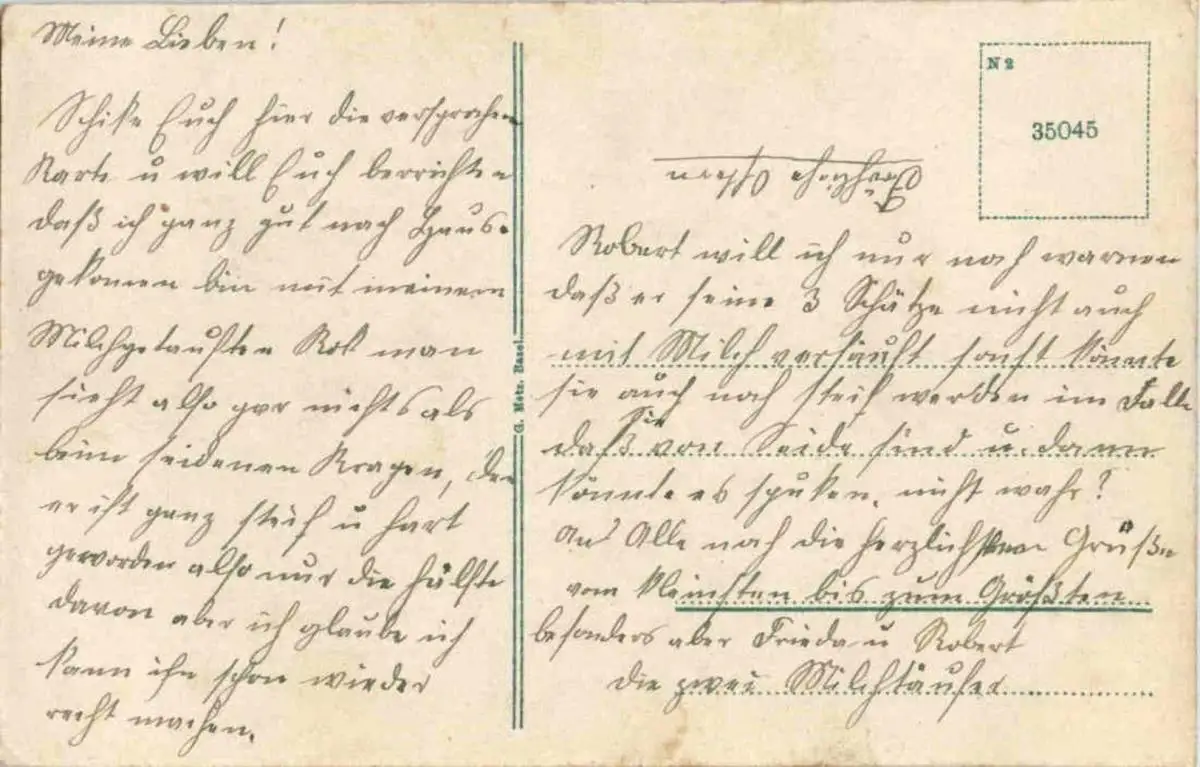 Meine Lieben!
Schike Euch hier die versprochen
Karte u will Euch berrichten
daß ich ganz gut nach Haus-
gekomen bin mit meinem
Milchgetauften Rok man
sieht also gar nichts als
beim seidenen Kragen, der
er ist ganz steif u hart
geworden also nur die hälfte
davon aber ich glaube ich
kann ihn schon wieder
recht machen.
G. Metz, Basel
N 2
35045
Robert will ich nur noch warnen
daß er seine 3 Schätze nicht auch
mit Milch versäuft sonst könnte
sie auch noch steif werden im Falle
daß sie von Seide sind u. dann
könnte es spuken, nicht wahr?
An Alle noch die herzlichsten Grüße
vom kleinsten bis zum Größten
besonders aber Frieda u Robert
die zwei Milchtäufer